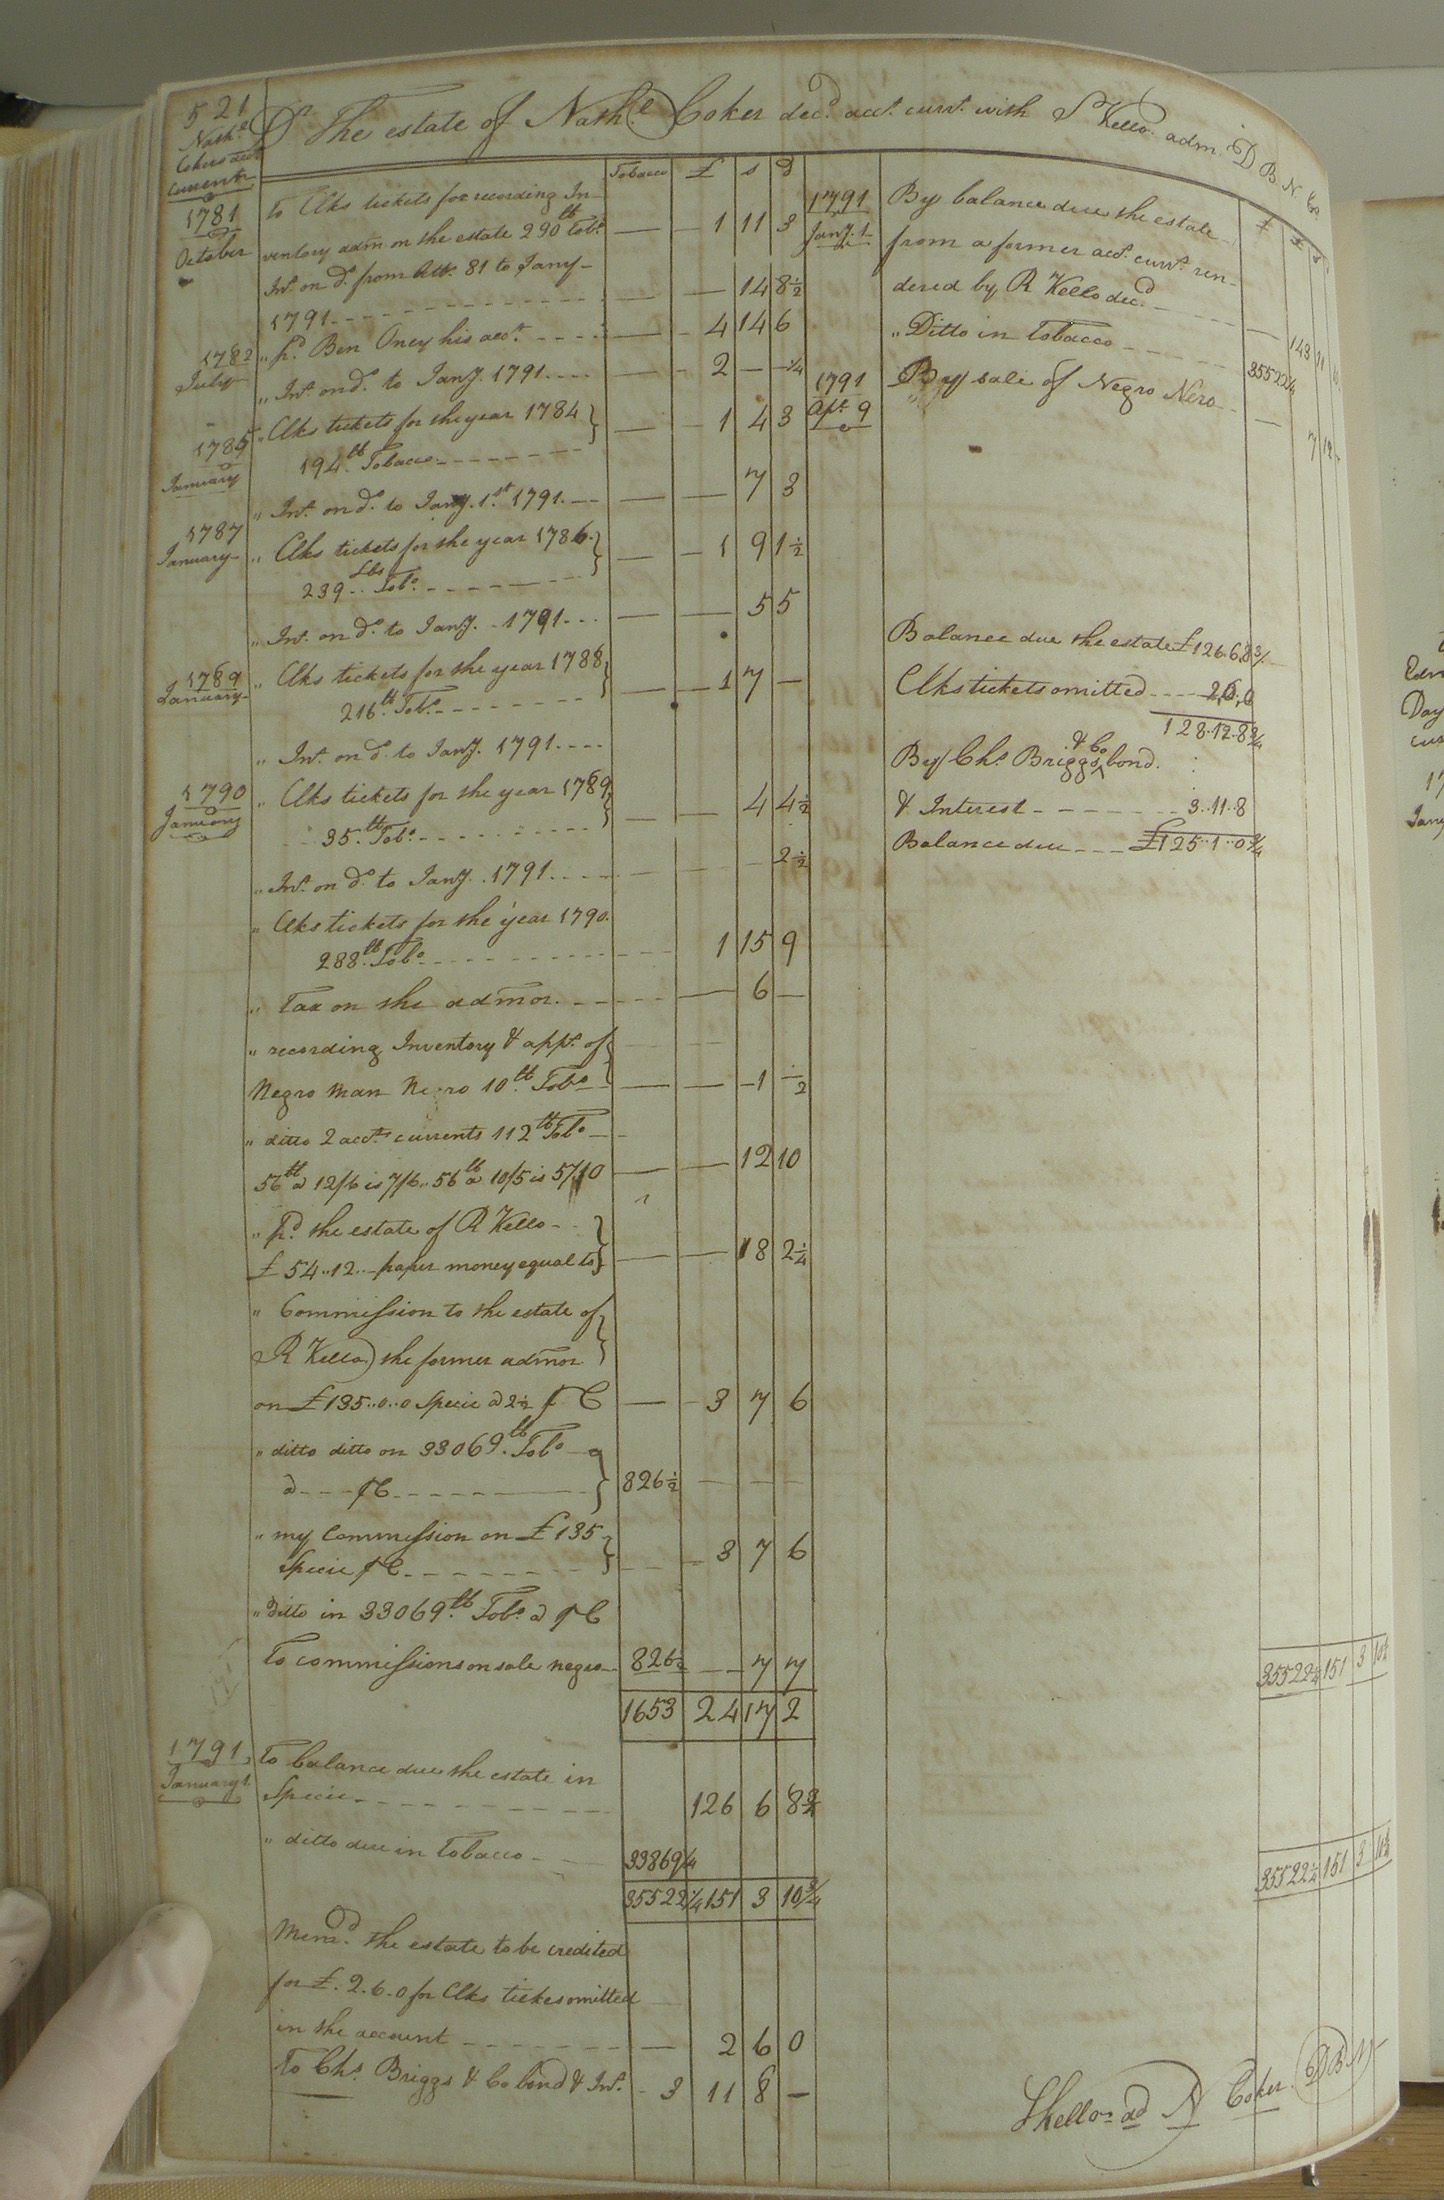 521
Nath.l
Cokers acct
Current
Dr The estate of Nath.l Coker decd. acct. curt. with S Kello adm. D B N Co.
Tobacco £ s d
1781
October
To Clks tickets for recording In-
ventory adm on the estate 290 lb Tobo. — — 1 11 3
Int. on do. from Octr. 81 to Jany-
1791 — — — 14 8½
1782
July
" pd. Ben Oney his acct. — — 4 14 6
" Int. on do. to Jany. 1791 — — 2 — -¼
1785
January
" Clks tickets for the year 1784
194 lb Tobacco — — 1 4 3
" Int. on do. to Jany. 1st. 1791 — — 7 3
1787
January
" Clks tickets for the year 1786
239 Lbs Tobo. — — 1 9 1½
" Int. on do. to Jany. 1791 — — 5 5
1789
January
" Clks tickets for the year 1788
216 lb Tobo. — — 1 7 —
" Int. on do. to Jany. 1791
1790
January
" Clks tickets for the year 1789
35 lb Tobo. — — 4 4½
" Int. on do. to Jany. 1791 2½
" Clks tickets for the year 1790
288 lb Tobo. 1 15 9
" Tax on the admor. — 6 —
" recording Inventory & appt. of
Negro man Nero 10 lb Tobo — — -1 -½
" ditto 2 acct. currents 112 lb Tobo
56 lb a 12/6 is 7/6 .. 56 lb a 10/5 is 5/10 — — 12 10
" pd. the estate of R Kello
£54..12.. paper money equal to — — 18 2¼
" Commission to the estate of
R Kello the former admor
on £135..0..0 Specie a 2½ p C — 3 7 6
" ditto ditto on 33069 lb Tobo
a - - - p C 826½ — — —
" my Commission on £135
Specie p C 3 7 6
" Ditto in 33069 lb Tobo. a p C
To commissions on sale negro 826½ — 7 7
1653 24 17 2
1791
January 1
To balance due the estate in
Specie 126 6 8¾
" ditto due in Tobacco 33869¼
35522¼ 151 3 10¾
Memd. the estate to be credited
for £.2.6.0 for Clks tickes omitted
in the account — 2 6 0
To Chs. Briggs & Co bond & Int. - 3 11 8 —
1791
Jany. 1
By balance due the estate
from a former acct. curt. ren-
dered by R Kello decd. — 143 11
" Ditto in Tobacco 35522¼
1791
Apl. 9
By sale of Negro Nero — 7 12
Balance due the estate £126.6.8¾
Clks tickets omitted 2,6,0
128.12.8¾
By Chs. Briggs & Co bond
& Interest 3..11..8
Balance due £125..1..0¾
35522¼ 151 3 10¾
35522¼ 151 3 10¾
SKello ad N Coker DBN